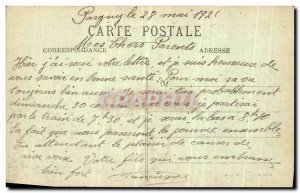 Pargny le 28 mai 1921
CARTE POSTALE
Mes Chers Parents
CORRESPONDANCE ADRESSE
Hier j'ai reçu votre lettre, et je suis heureuse de
vous savoir en bonne santé. Pour moi sa va
toujours bien aussi. Je probablement
dimanche 30 je partirai
par le train de 7h30 et je serai là-bas à 8h40
Sa fait que nous passerons la journée ensemble.
En attendant le plaisir de causer de
vive voix. Votre fils qui vous embrasse
bien fort